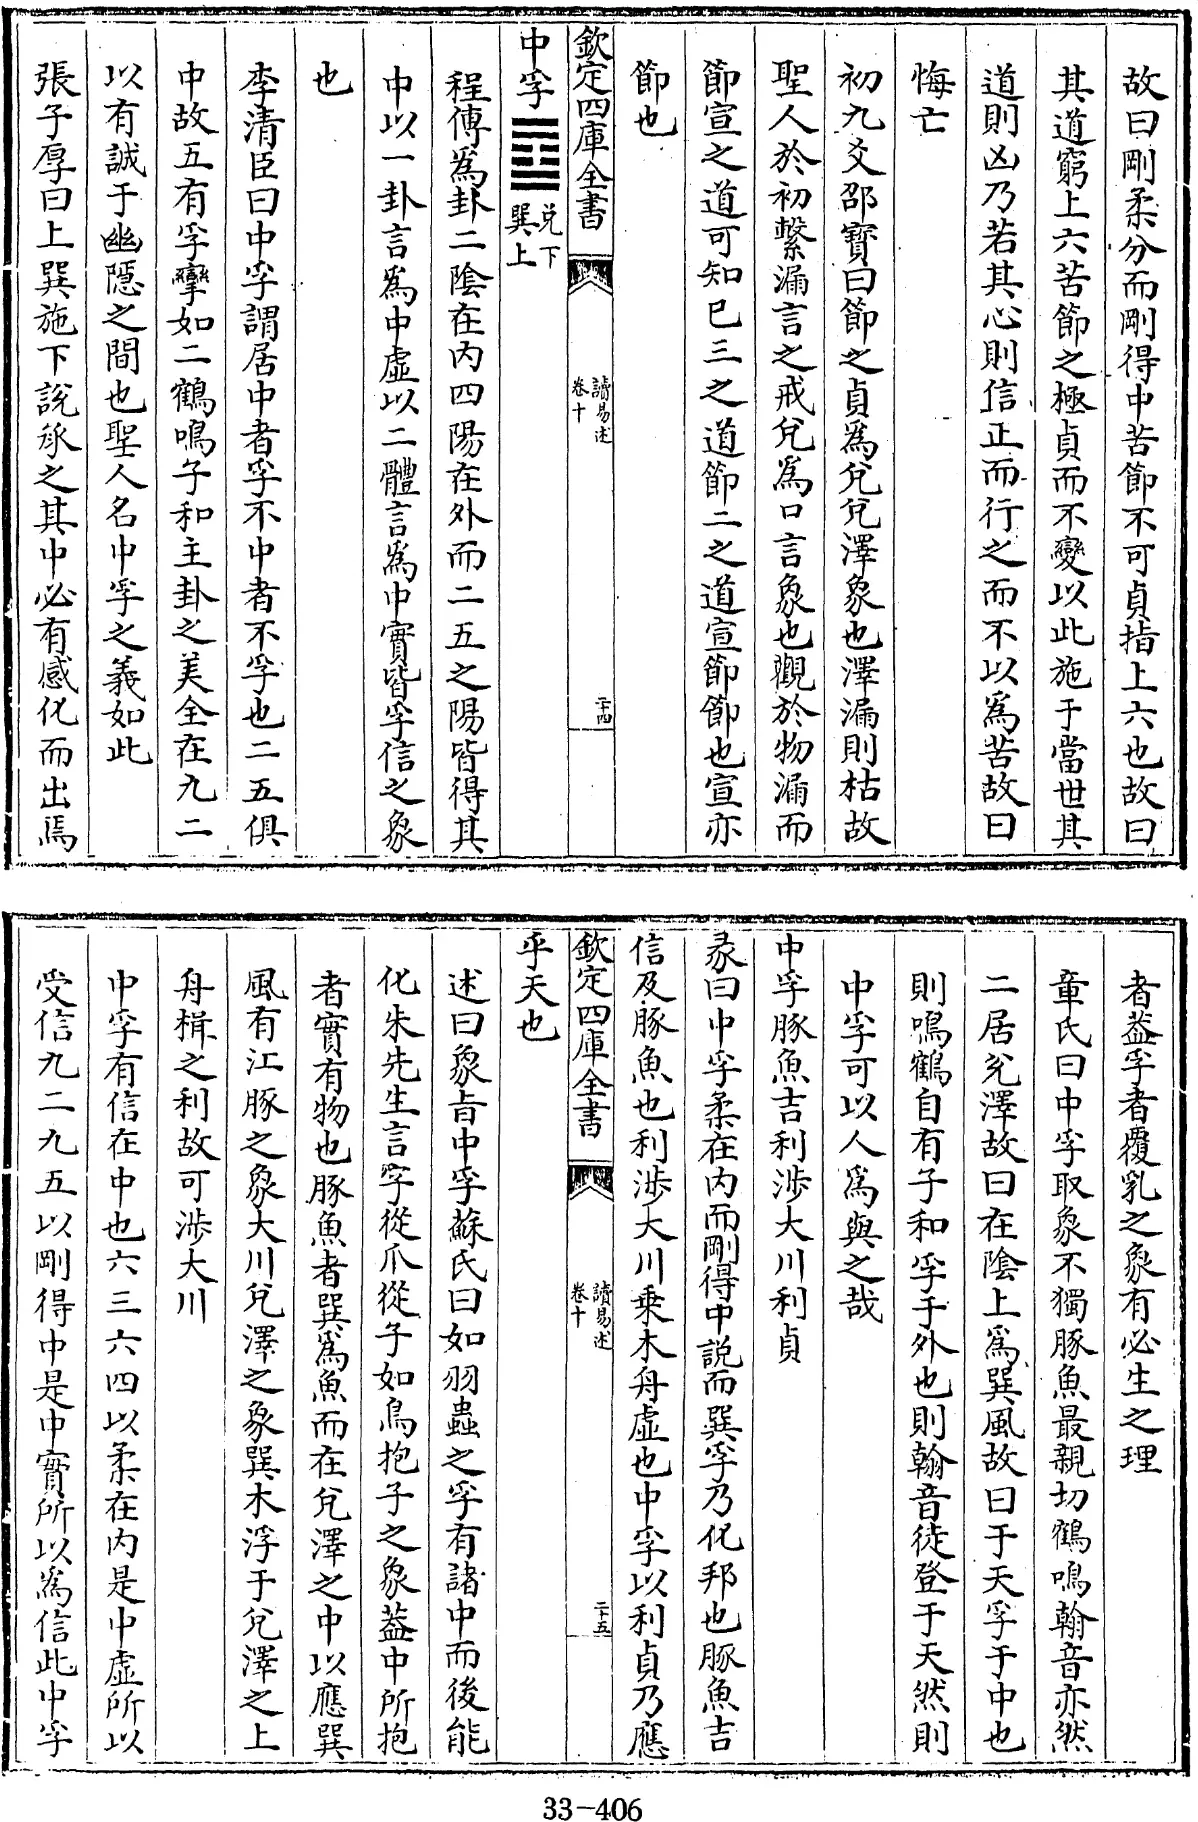 故曰剛柔分而剛得中苦節不可貞指上六也故曰
其道窮上六苦節之極貞而不變以此施于當世其
道則凶乃若其心則信正而行之而不以為苦故曰
悔亡
初九爻邵寶曰節之貞為兌兌澤象也澤漏則枯故
聖人於初繫漏言之戒兌為口言象也觀於物漏而
節宣之道可知已三之道節二之道宣節節也宣亦
節也
欽定四庫全書
讀易述
卷十
二十四
中孚䷼兌下
巽上
程傳為卦二陰在内四陽在外而二五之陽皆得其
中以一卦言為中虛以二體言為中實皆孚信之象
也
李清臣曰中孚謂居中者孚不中者不孚也二五俱
中故五有孚攣如二鶴鳴子和主卦之美全在九二
以有誠于幽隱之間也聖人名中孚之義如此
張子厚曰上巽施下說承之其中必有感化而出焉
者葢孚者覆乳之象有必生之理
章氏曰中孚取象不獨豚魚最親切鶴鳴翰音亦然
二居兌澤故曰在陰上為巽風故曰于天孚于中也
則鳴鶴自有子和孚于外也則翰音徒登于天然則
中孚可以人為與之哉
中孚豚魚吉利涉大川利貞
彖曰中孚柔在内而剛得中說而巽孚乃化邦也豚魚吉
信及豚魚也利涉大川乗木舟虛也中孚以利貞乃應
欽定四庫全書
讀易述
卷十
二十五
乎天也
述曰象旨中孚蘇氏曰如羽蟲之孚有諸中而後能
化朱先生言孚從爪從子如鳥抱子之象葢中所抱
者實有物也豚魚者巽為魚而在兌澤之中以應巽
風有江豚之象大川兌澤之象巽木浮于兌澤之上
舟楫之利故可涉大川
中孚有信在中也六三六四以柔在内是中虛所以
受信九二九五以剛得中是中實所以為信此中孚
33-406